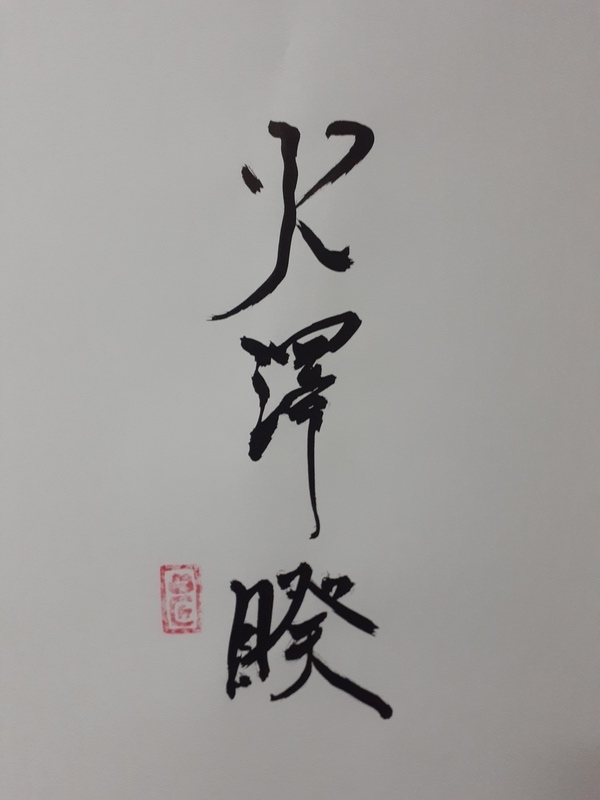 火澤睽